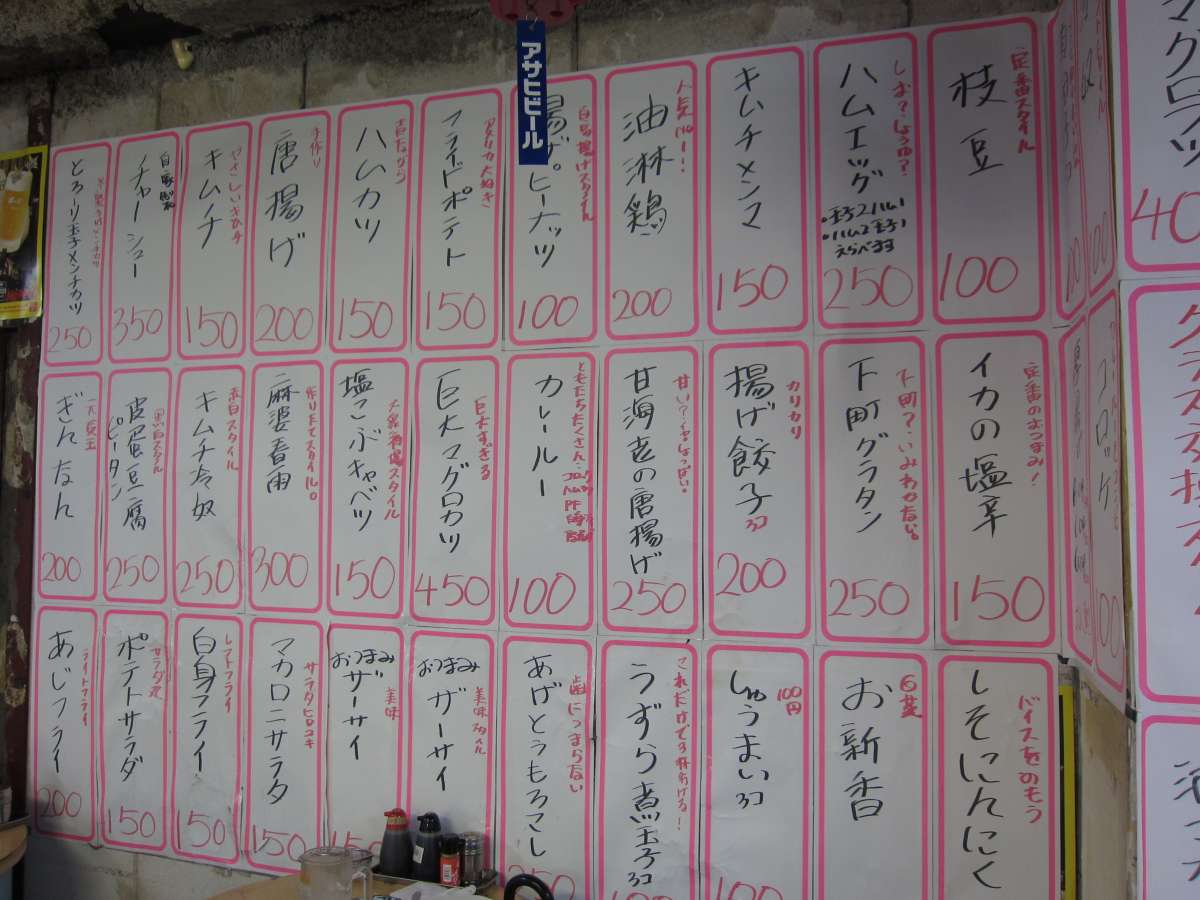 アサヒビール
定番スタイル
枝豆
100
しお?しょうゆ?
ハムエッグ
•玉子2ハム1
•ハム2玉子1
えらべます
250
キムチメンマ
150
油淋鶏
200
自家揚げスタイル
揚げピーナッツ
100
フライドポテト
150
ハムカツ
150
手作り
唐揚げ
200
やさしいキムチ
キムチ
150
自家製
チャーシュー
350
とろーり玉子メンチカツ
250
定番のおつまみ!
イカの塩辛
150
下町?いみわかない。
下町グラタン
250
カリカリ
揚げ餃子3コ
200
甘い?しょっぱい。
甘海老の唐揚げ
250
ともだちたくさん…
カレールー
100
巨大すぎる
巨大マグロカツ
450
大衆酒場スタイル
塩こぶキャベツ
150
作りたてスタイル。
麻婆春雨
300
赤白スタイル
キムチ冷奴
250
黒白スタイル
皮蛋豆腐
ピータン
250
ぎんなん
200
バイスをのもう
しそにんにく
お新香
100円
しゅうまい3コ
100
これだけで3杯いける!
うずら煮玉子3コ
100
歯につまらない
あげとうもろこし
250
美味スタイル
おつまみ
ザーサイ
美味
おつまみ
ザーサイ
サラダにコキ
マカロニサラダ
150
レフトフライ
白身フライ
150
サラダ党
ポテトサラダ
150
ライトフライ
あじフライ
200
コロッケ